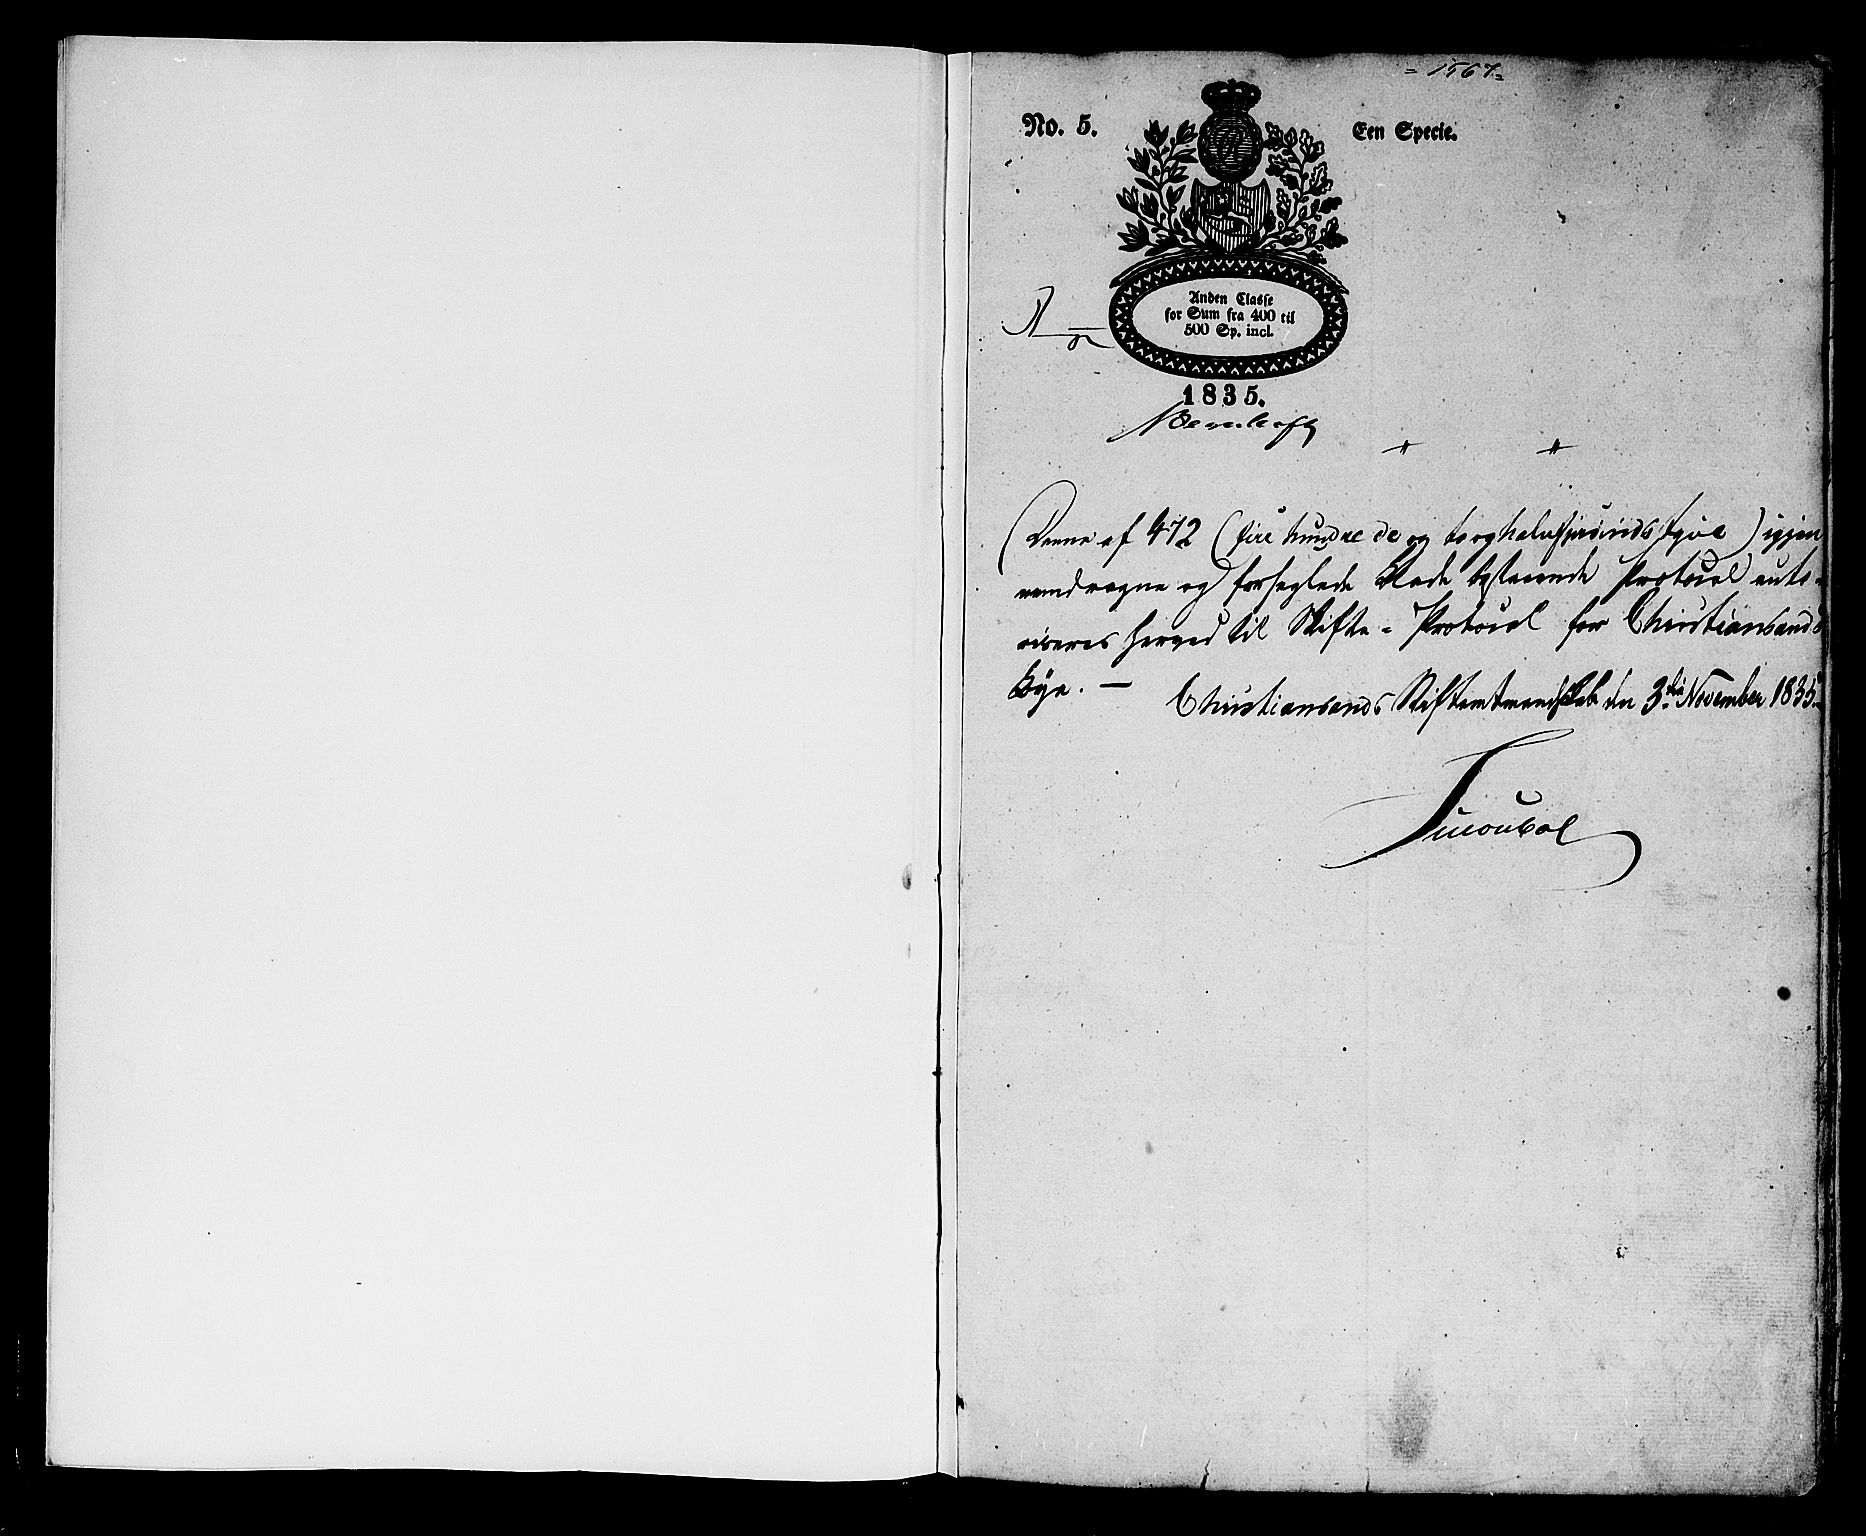 = 1567 =
No. 5.
Een Specie.
Anden Classe
for Sum fra 400 til
500 Sp. incl.
1835.
Denne af 472 (fire hundrede og toeghalvfjersinds tyve) igjen
nemdragne og forseglede Blade bestaaende Protocol auto-
riseres herved til Skifte-Protocol for Christiansands
Bye. —
Christiansands Stiftamtmandskab den 3die November 1835.